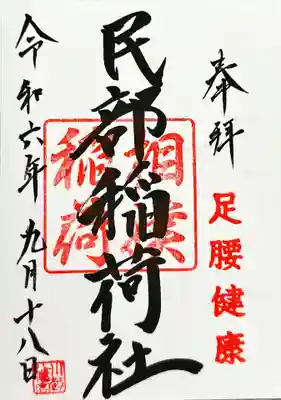 奉拝
足腰健康
民部稲荷社
相撲稲荷
令和六年九月十八日